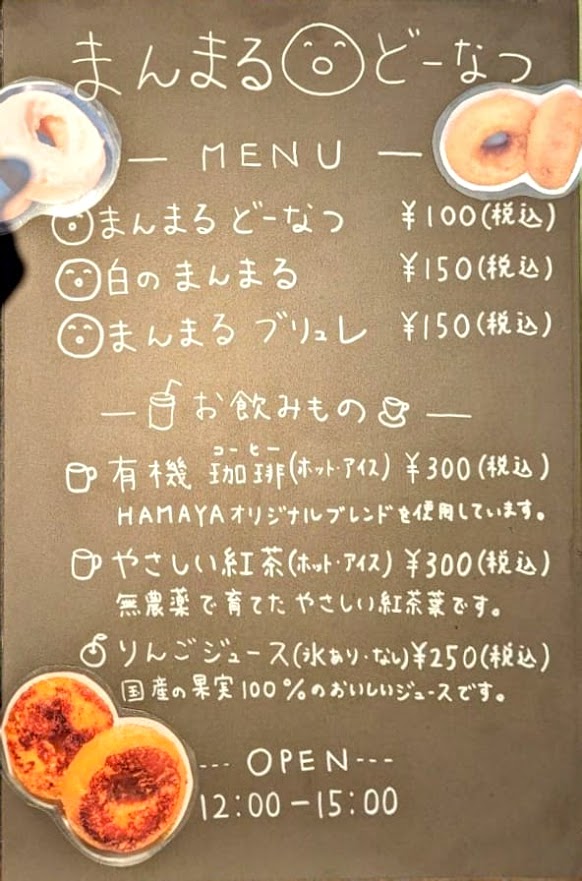 まんまるどーなつ
— MENU —
まんまるどーなつ ¥100(税込)
白のまんまる ¥150(税込)
まんまるブリュレ ¥150(税込)
— お飲みもの —
コーヒー
有機 珈琲(ホット・アイス) ¥300(税込)
HAMAYAオリジナルブレンドを使用しています。
やさしい紅茶(ホット・アイス) ¥300(税込)
無農薬で育てたやさしい紅茶葉です。
りんごジュース(氷あり・なし)¥250(税込)
国産の果実100%のおいしいジュースです。
--- OPEN ---
12:00-15:00